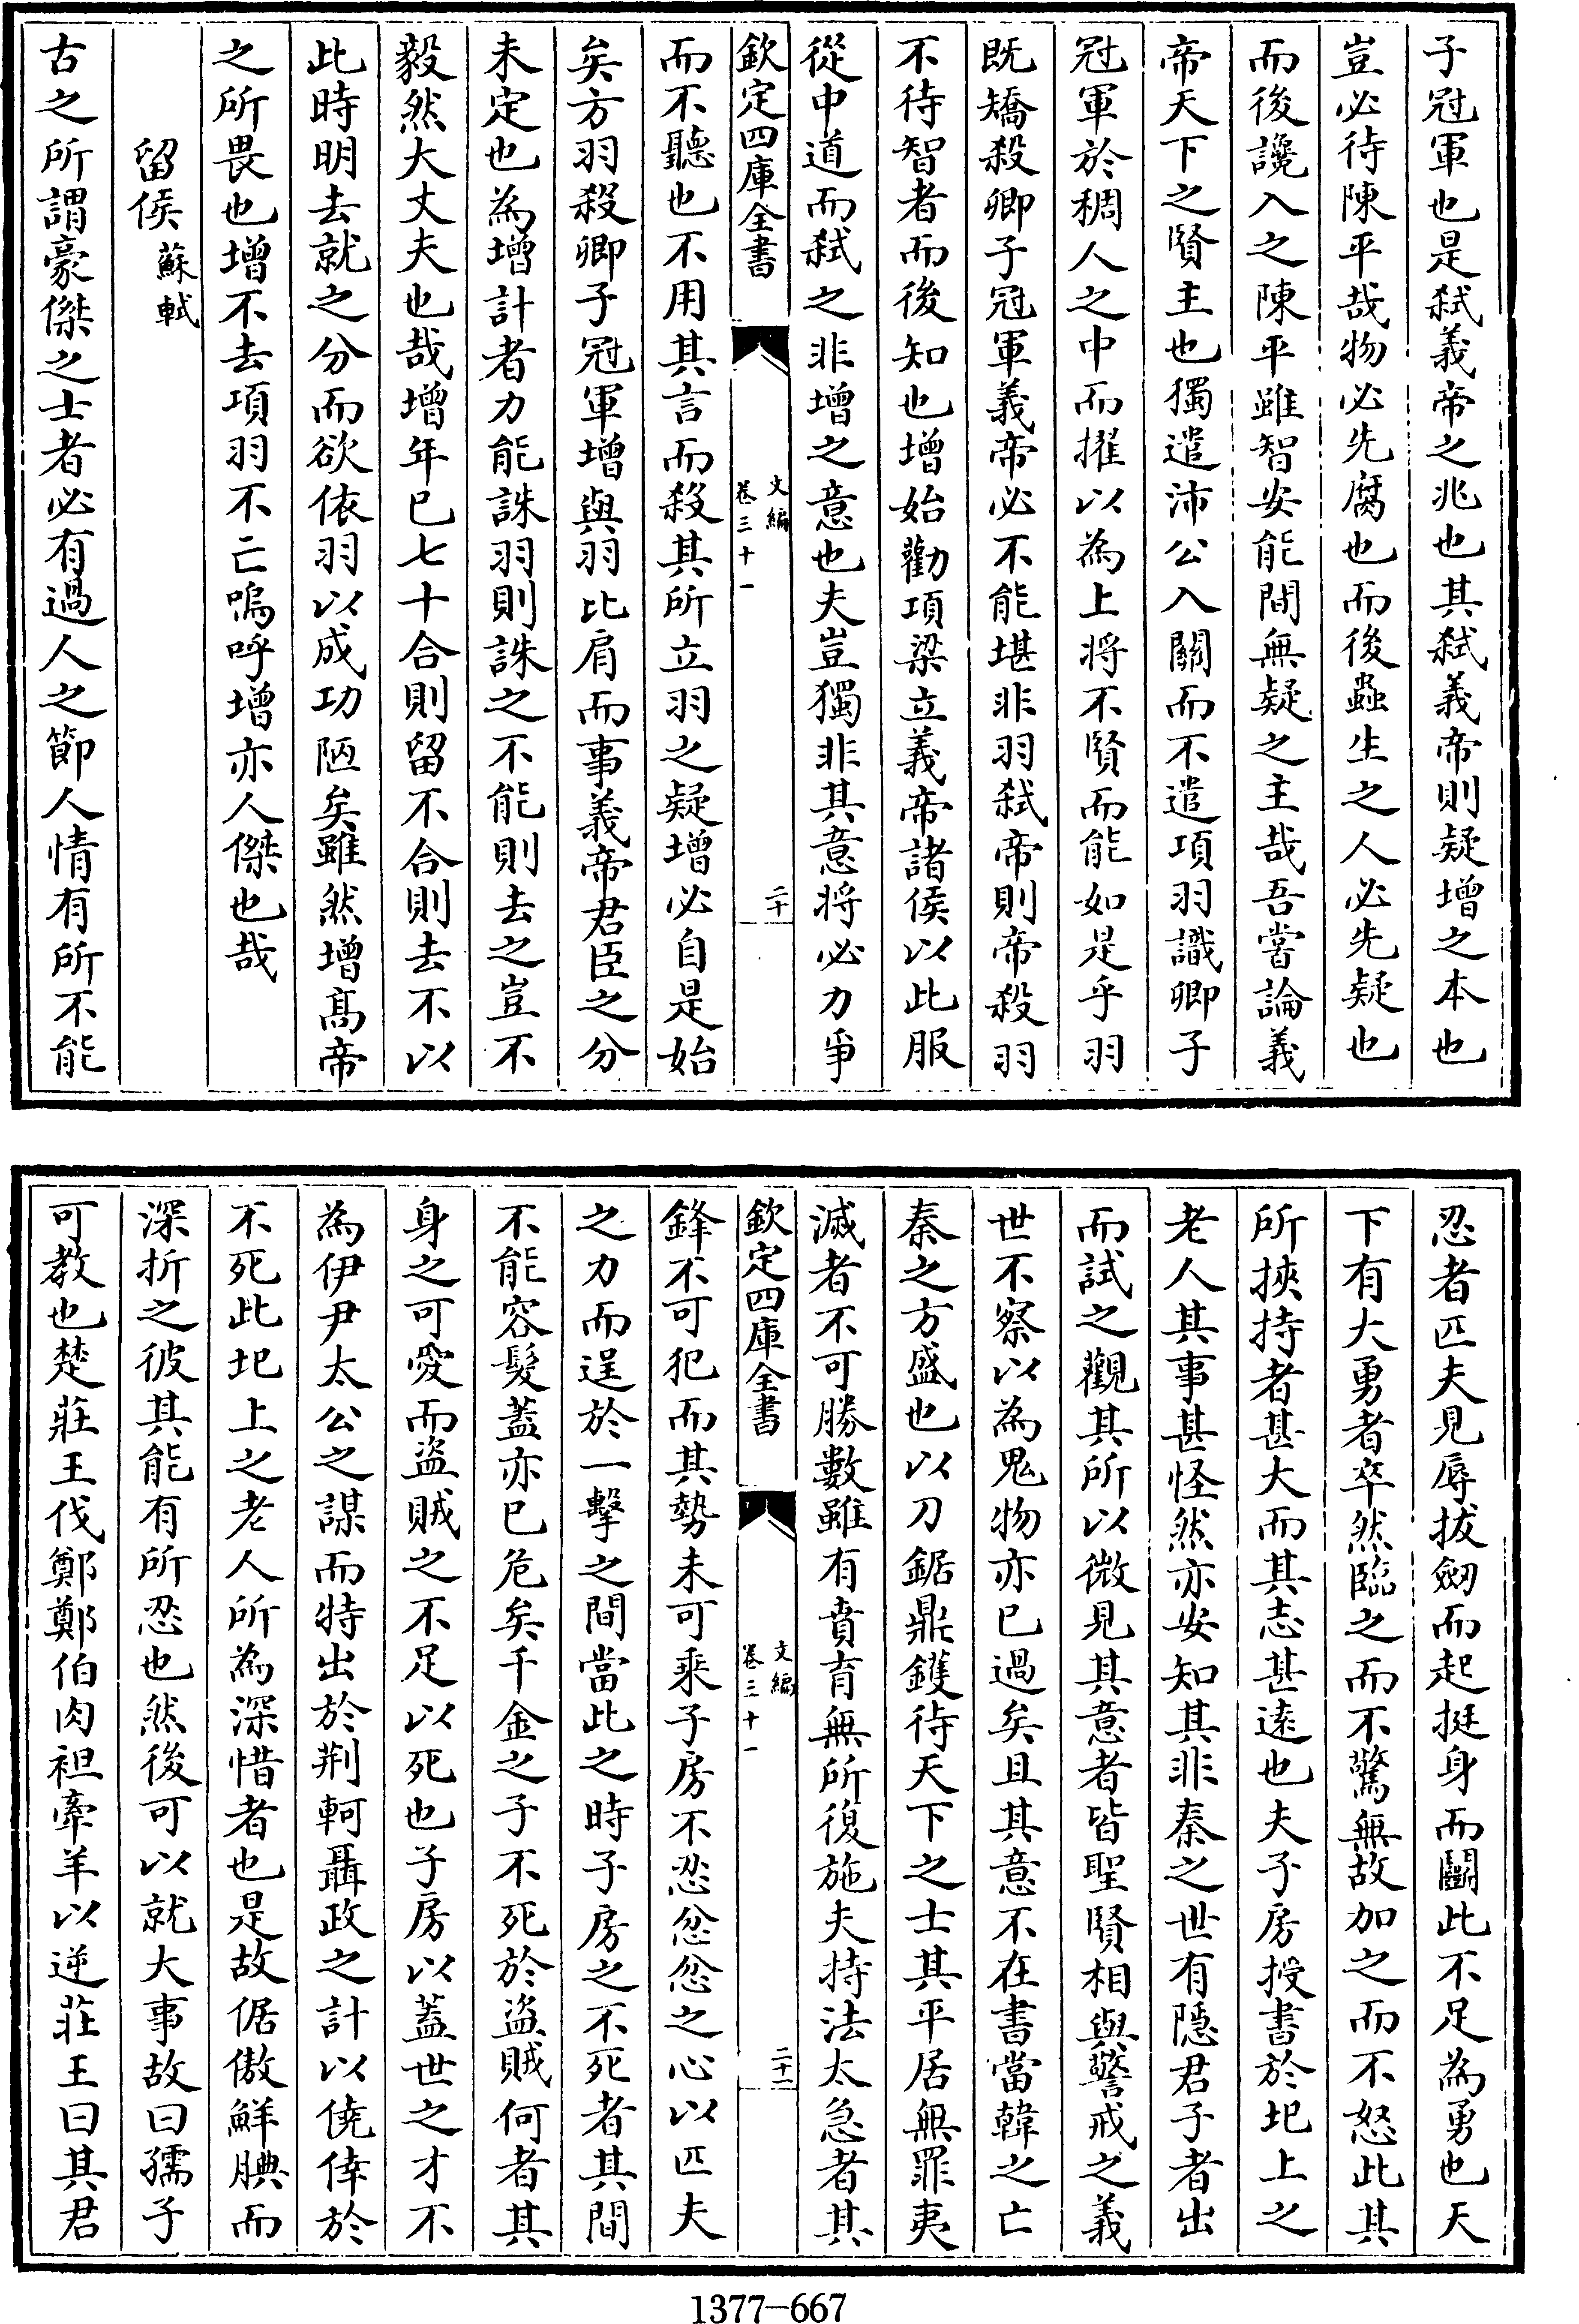 子冠軍也是弑義帝之兆也其弑義帝則疑增之本也
豈必待陳平哉物必先腐也而後蟲生之人必先疑也
而後讒入之陳平雖智安能間無疑之主哉吾嘗論義
帝天下之賢主也獨遣沛公入關而不遣項羽識卿子
冠軍於稠人之中而擢以為上將不賢而能如是乎羽
既矯殺卿子冠軍義帝必不能堪非羽弑帝則帝殺羽
不待智者而後知也增始勸項梁立義帝諸侯以此服
從中道而弑之非增之意也夫豈獨非其意將必力爭
欽定四庫全書
文編
卷三十一
二十
而不聽也不用其言而殺其所立羽之疑增必自是始
矣方羽殺卿子冠軍增與羽比肩而事義帝君臣之分
未定也為增計者力能誅羽則誅之不能則去之豈不
毅然大丈夫也哉增年已七十合則留不合則去不以
此時明去就之分而欲依羽以成功陋矣雖然增髙帝
之所畏也增不去項羽不亡嗚呼增亦人傑也哉
留侯 蘇軾
古之所謂豪傑之士者必有過人之節人情有所不能
忍者匹夫見辱拔劒而起挺身而鬭此不足為勇也天
下有大勇者卒然臨之而不驚無故加之而不怒此其
所挾持者甚大而其志甚逺也夫子房授書於圯上之
老人其事甚怪然亦安知其非秦之世有隠君子者出
而試之觀其所以微見其意者皆聖賢相與警戒之義
世不察以為鬼物亦已過矣且其意不在書當韓之亡
秦之方盛也以刀鋸鼎鑊待天下之士其平居無罪夷
滅者不可勝數雖有賁育無所復施夫持法太急者其
欽定四庫全書
文編
卷三十一
二十一
鋒不可犯而其勢未可乘子房不忍忿忿之心以匹夫
之力而逞於一擊之間當此之時子房之不死者其間
不能容髮蓋亦已危矣千金之子不死於盜賊何者其
身之可愛而盜賊之不足以死也子房以蓋世之才不
為伊尹太公之謀而特出於荆軻聶政之計以僥倖於
不死此圯上之老人所為深惜者也是故倨傲鮮腆而
深折之彼其能有所忍也然後可以就大事故曰孺子
可教也楚莊王伐鄭鄭伯肉袒牽羊以逆莊王曰其君
1377-667